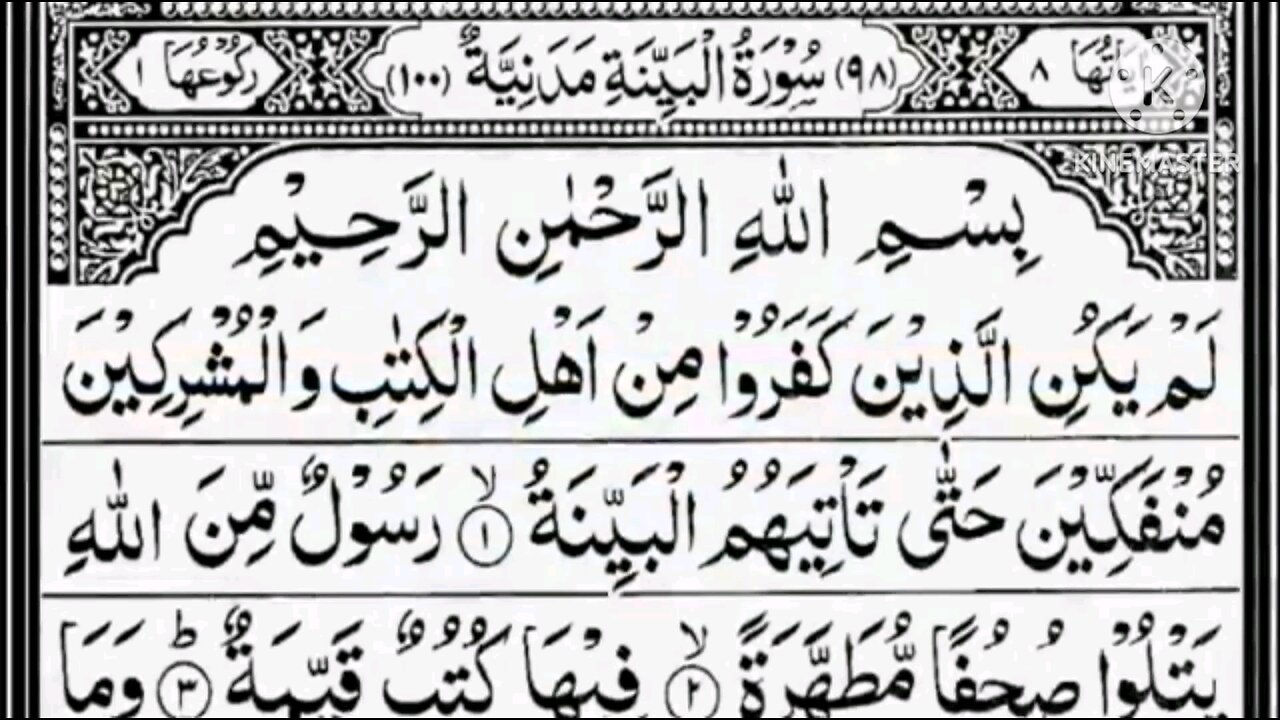 اٰيَاتُهَا ٨ (٩٨) سُوْرَةُ الْبَيِّنَةِ مَدَنِيَّةٌ (١٠٠) رُكُوْعُهَا ١
K
KINEMASTER
بِسْمِ اللّٰهِ الرَّحْمٰنِ الرَّحِيْمِ
لَمْ يَكُنِ الَّذِيْنَ كَفَرُوْا مِنْ اَهْلِ الْكِتٰبِ وَالْمُشْرِكِيْنَ
مُنْفَكِّيْنَ حَتّٰى تَاْتِيَهُمُ الْبَيِّنَةُ ۙ ١ رَسُوْلٌ مِّنَ اللّٰهِ
يَتْلُوْا صُحُفًا مُّطَهَّرَةً ۙ ٢ فِيْهَا كُتُبٌ قَيِّمَةٌ ؕ ٣ وَمَا